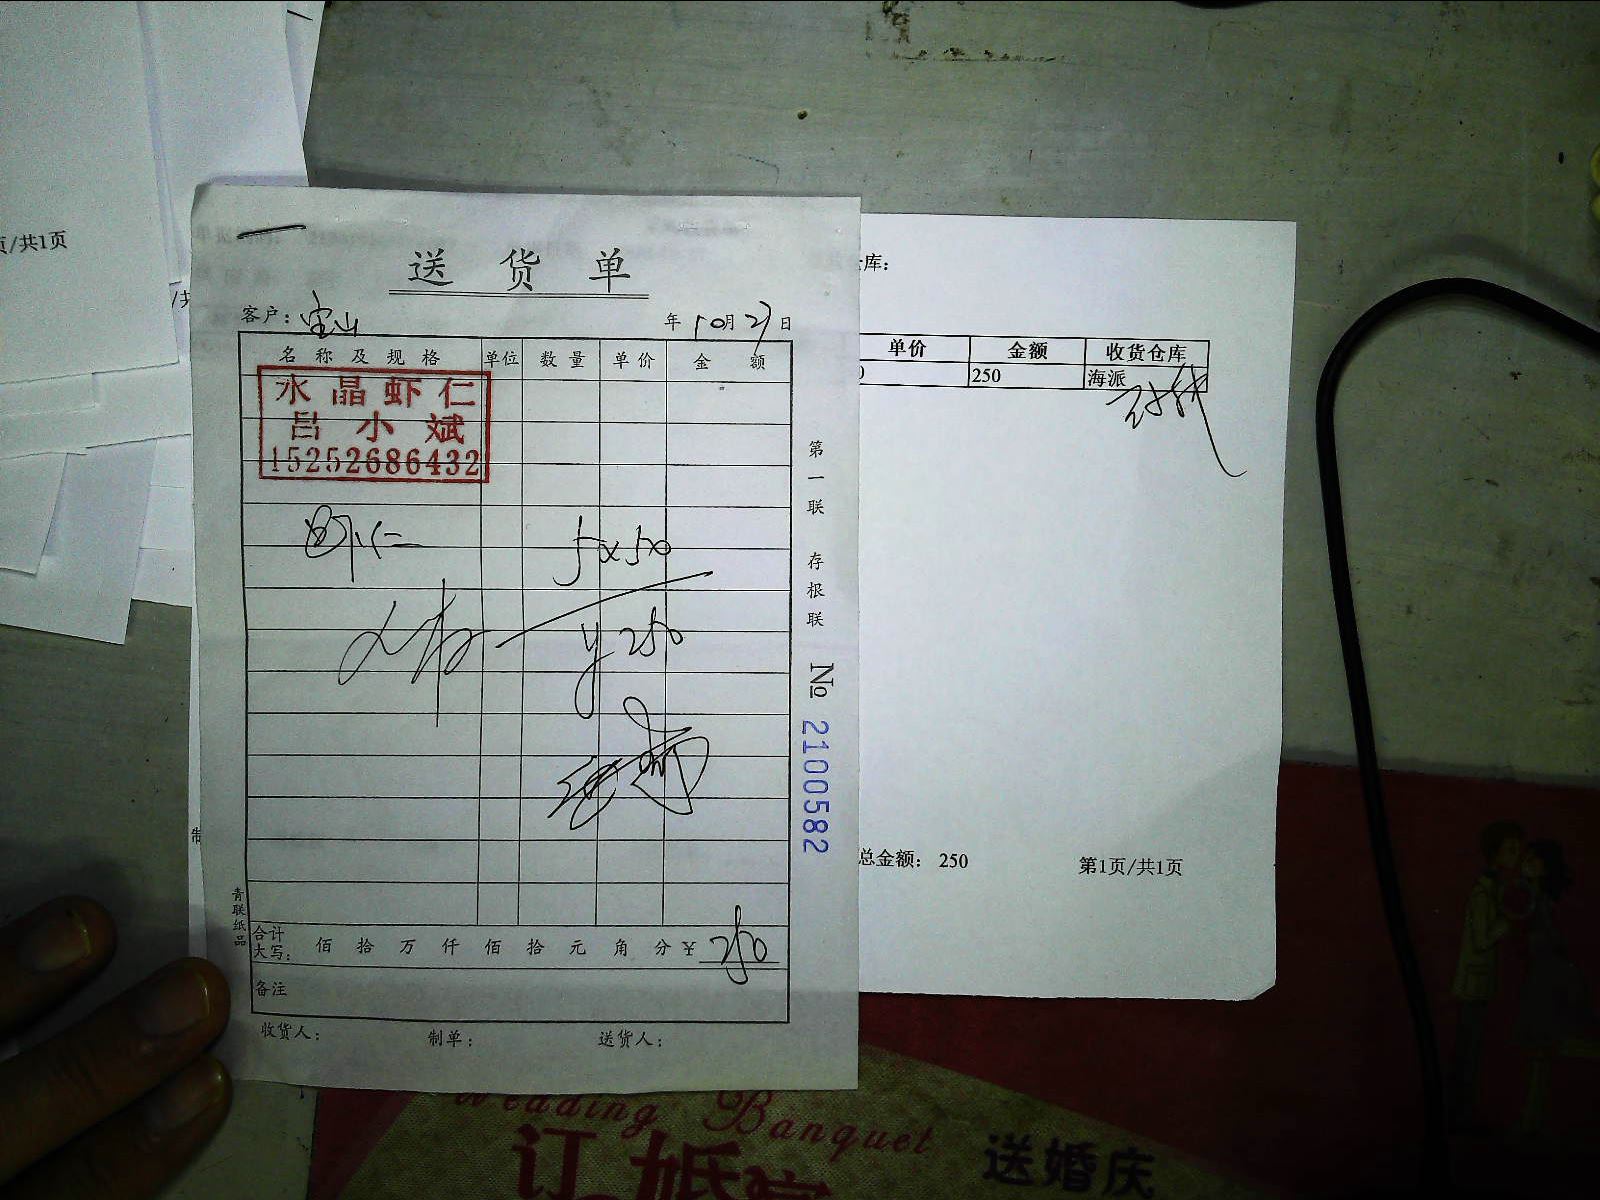 页/共1页
送货单
客户: 宝山
年 10月 27日
名称及规格 单位 数量 单价 金额
水晶虾仁
吕小斌
15252686432
虾仁 5x50
¥250
第一联 存根联 № 2100582
青联纸品
合计大写: 佰 拾 万 仟 佰 拾 元 角 分 ¥ 250
备注
收货人: 制单: 送货人:
库:
单价 金额 收货仓库
250 海派
总金额: 250 第1页/共1页
制
Wedding Banquet
订婚宴
送婚庆